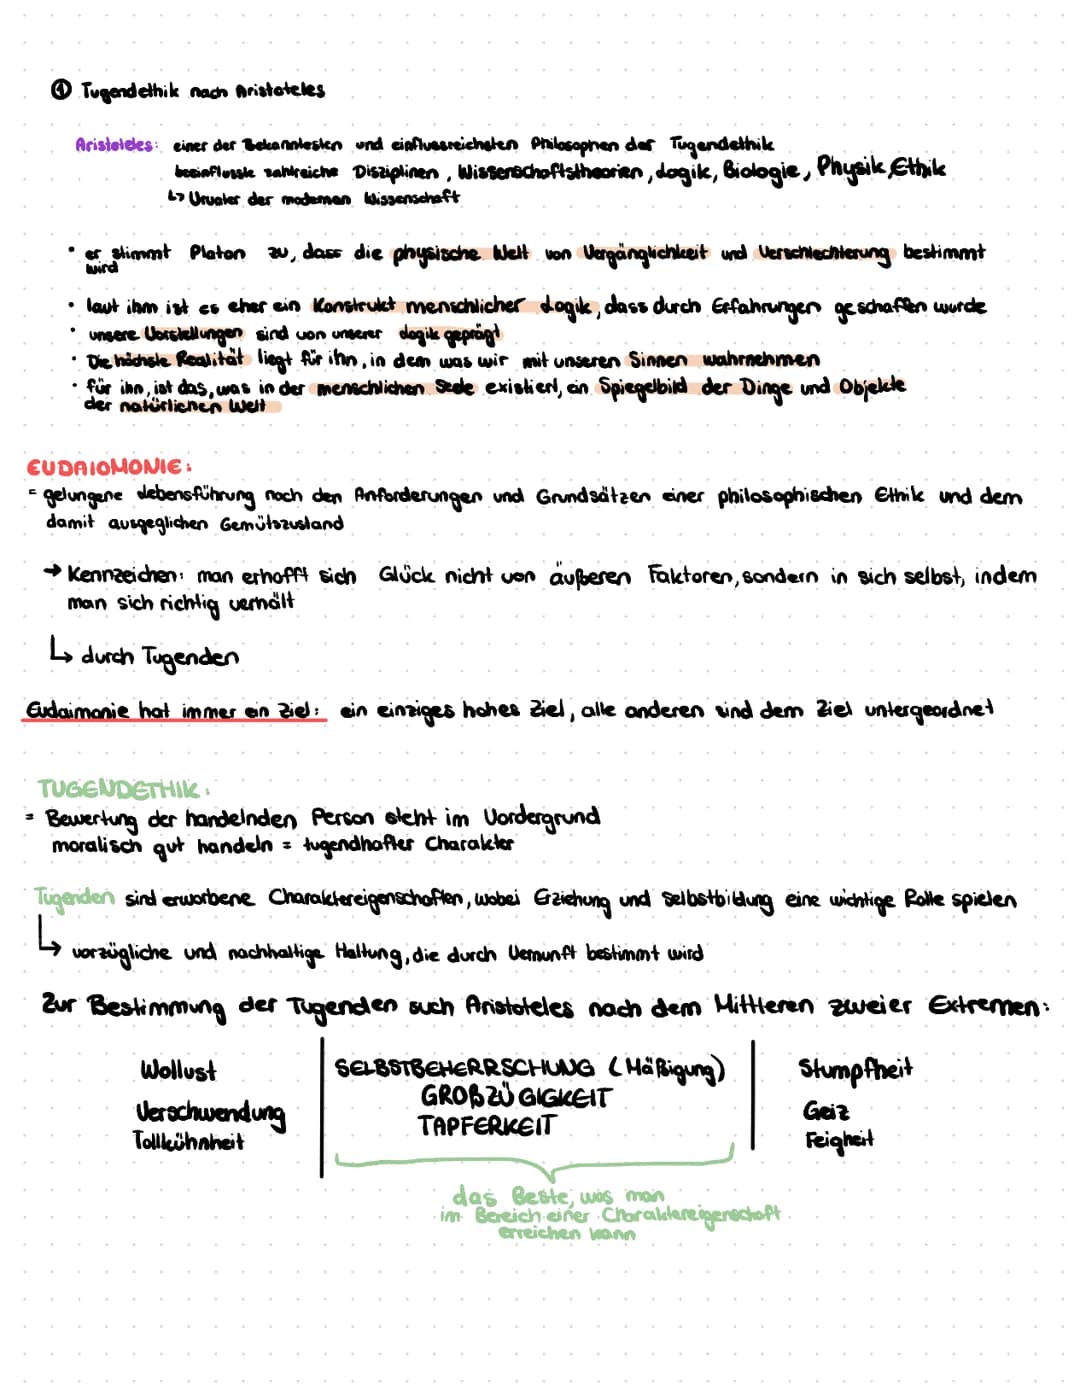 ① Tugendethik nach Aristoteles
Aristoteles: einer der Bekanntesten und einflussreichsten Philosophen der Tugendethik
beeinflusste zahlreiche Disziplinen, Wissenschaftstheorien, Logik, Biologie, Physik, Ethik
↳ Urvater der modernen Wissenschaft
• er stimmt Platon zu, dass die physische Welt von Vergänglichkeit und Verschlechterung bestimmt
wird
• laut ihm ist es eher ein Konstrukt menschlicher Logik, dass durch Erfahrungen geschaffen wurde
• unsere Vorstellungen sind von unserer Logik geprägt
• Die höchste Realität liegt für ihn, in dem was wir mit unseren Sinnen wahrnehmen
• für ihn, ist das, was in der menschlichen Seele existiert, ein Spiegelbild der Dinge und Objekte
der natürlichen Welt
EUDAIOMONIE:
= gelungene Lebensführung nach den Anforderungen und Grundsätzen einer philosophischen Ethik und dem
damit ausgeglichen Gemütszustand
→ Kennzeichen: man erhofft sich Glück nicht von äußeren Faktoren, sondern in sich selbst, indem
man sich richtig verhält
↳ durch Tugenden
Eudaimonie hat immer ein Ziel: ein einziges hohes Ziel, alle anderen sind dem Ziel untergeordnet
TUGENDETHIK:
= Bewertung der handelnden Person steht im Vordergrund
moralisch gut handeln = tugendhafter Charakter
Tugenden sind erworbene Charaktereigenschaften, wobei Erziehung und Selbstbildung eine wichtige Rolle spielen
↳ vorzügliche und nachhaltige Haltung, die durch Vernunft bestimmt wird
Zur Bestimmung der Tugenden such Aristoteles nach dem Mittleren zweier Extremen:
Wollust SELBSTBEHERRSCHUNG (Mäßigung) Stumpfheit
Verschwendung GROßZÜGIGKEIT Geiz
Tollkühnheit TAPFERKEIT Feigheit
das Beste, was man
im Bereich einer Charaktereigenschaft
erreichen kann